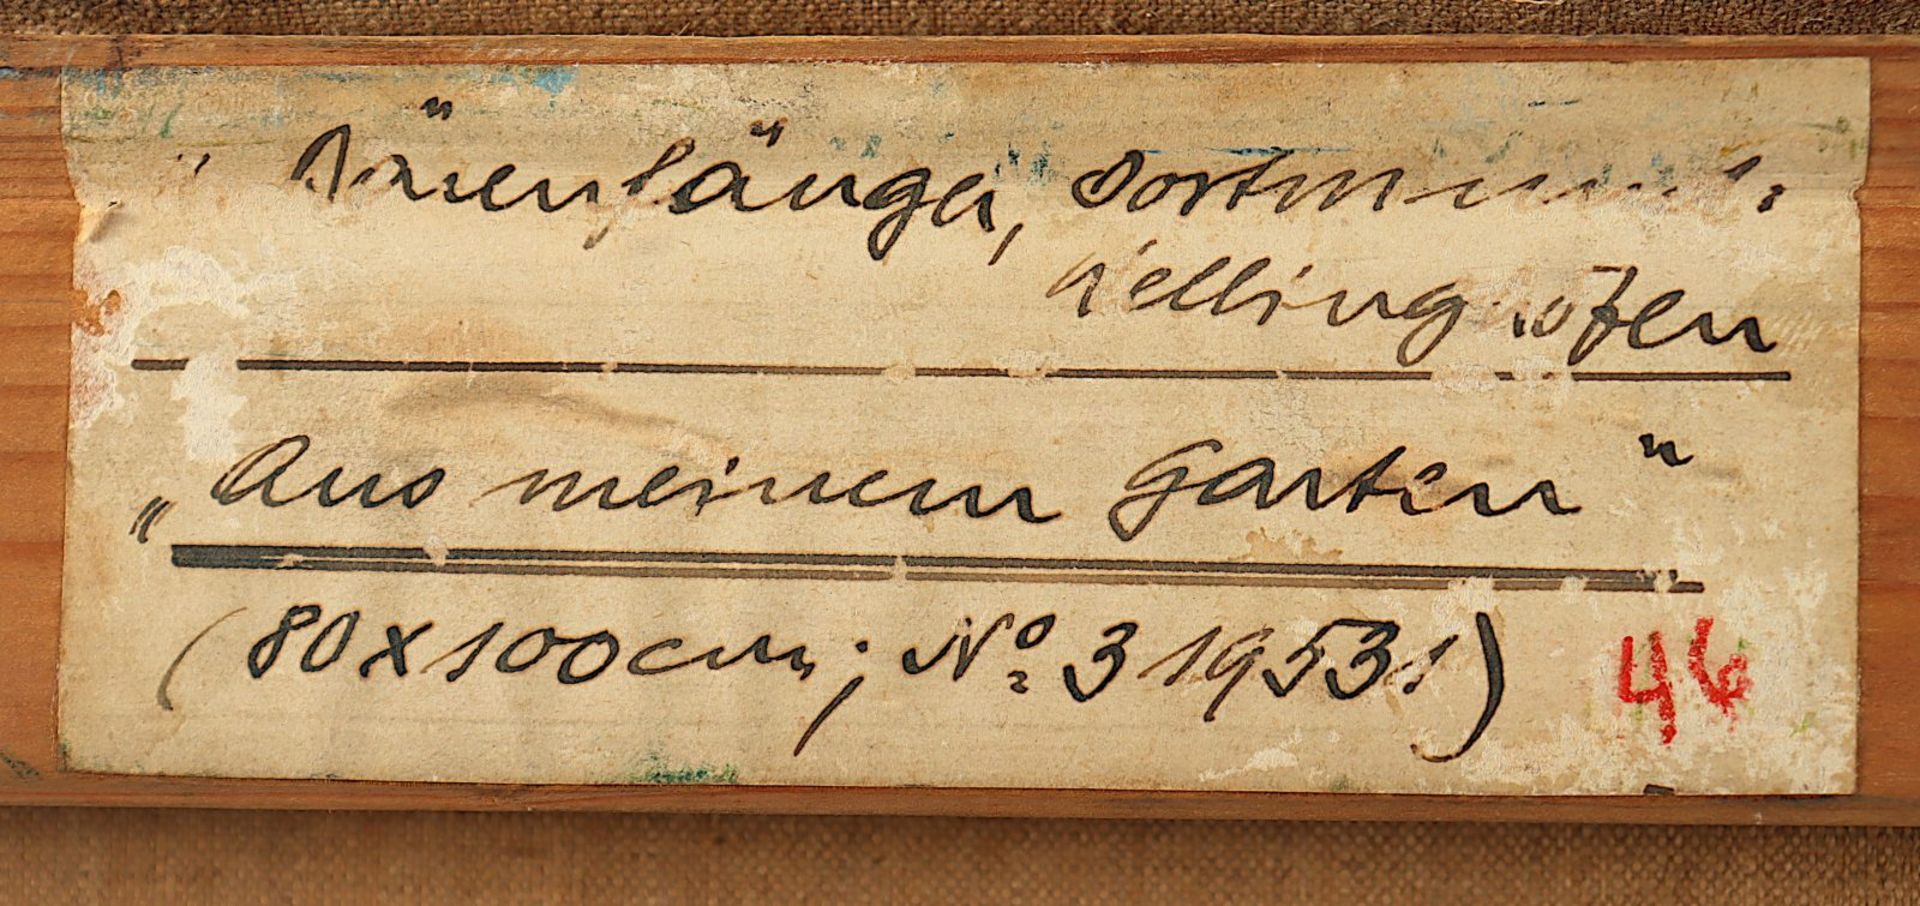 Bärenfänger, Dortmund-
Wellinghofen
„Aus meinem Garten"
(80x100cm; Nº 3 1953!)
46